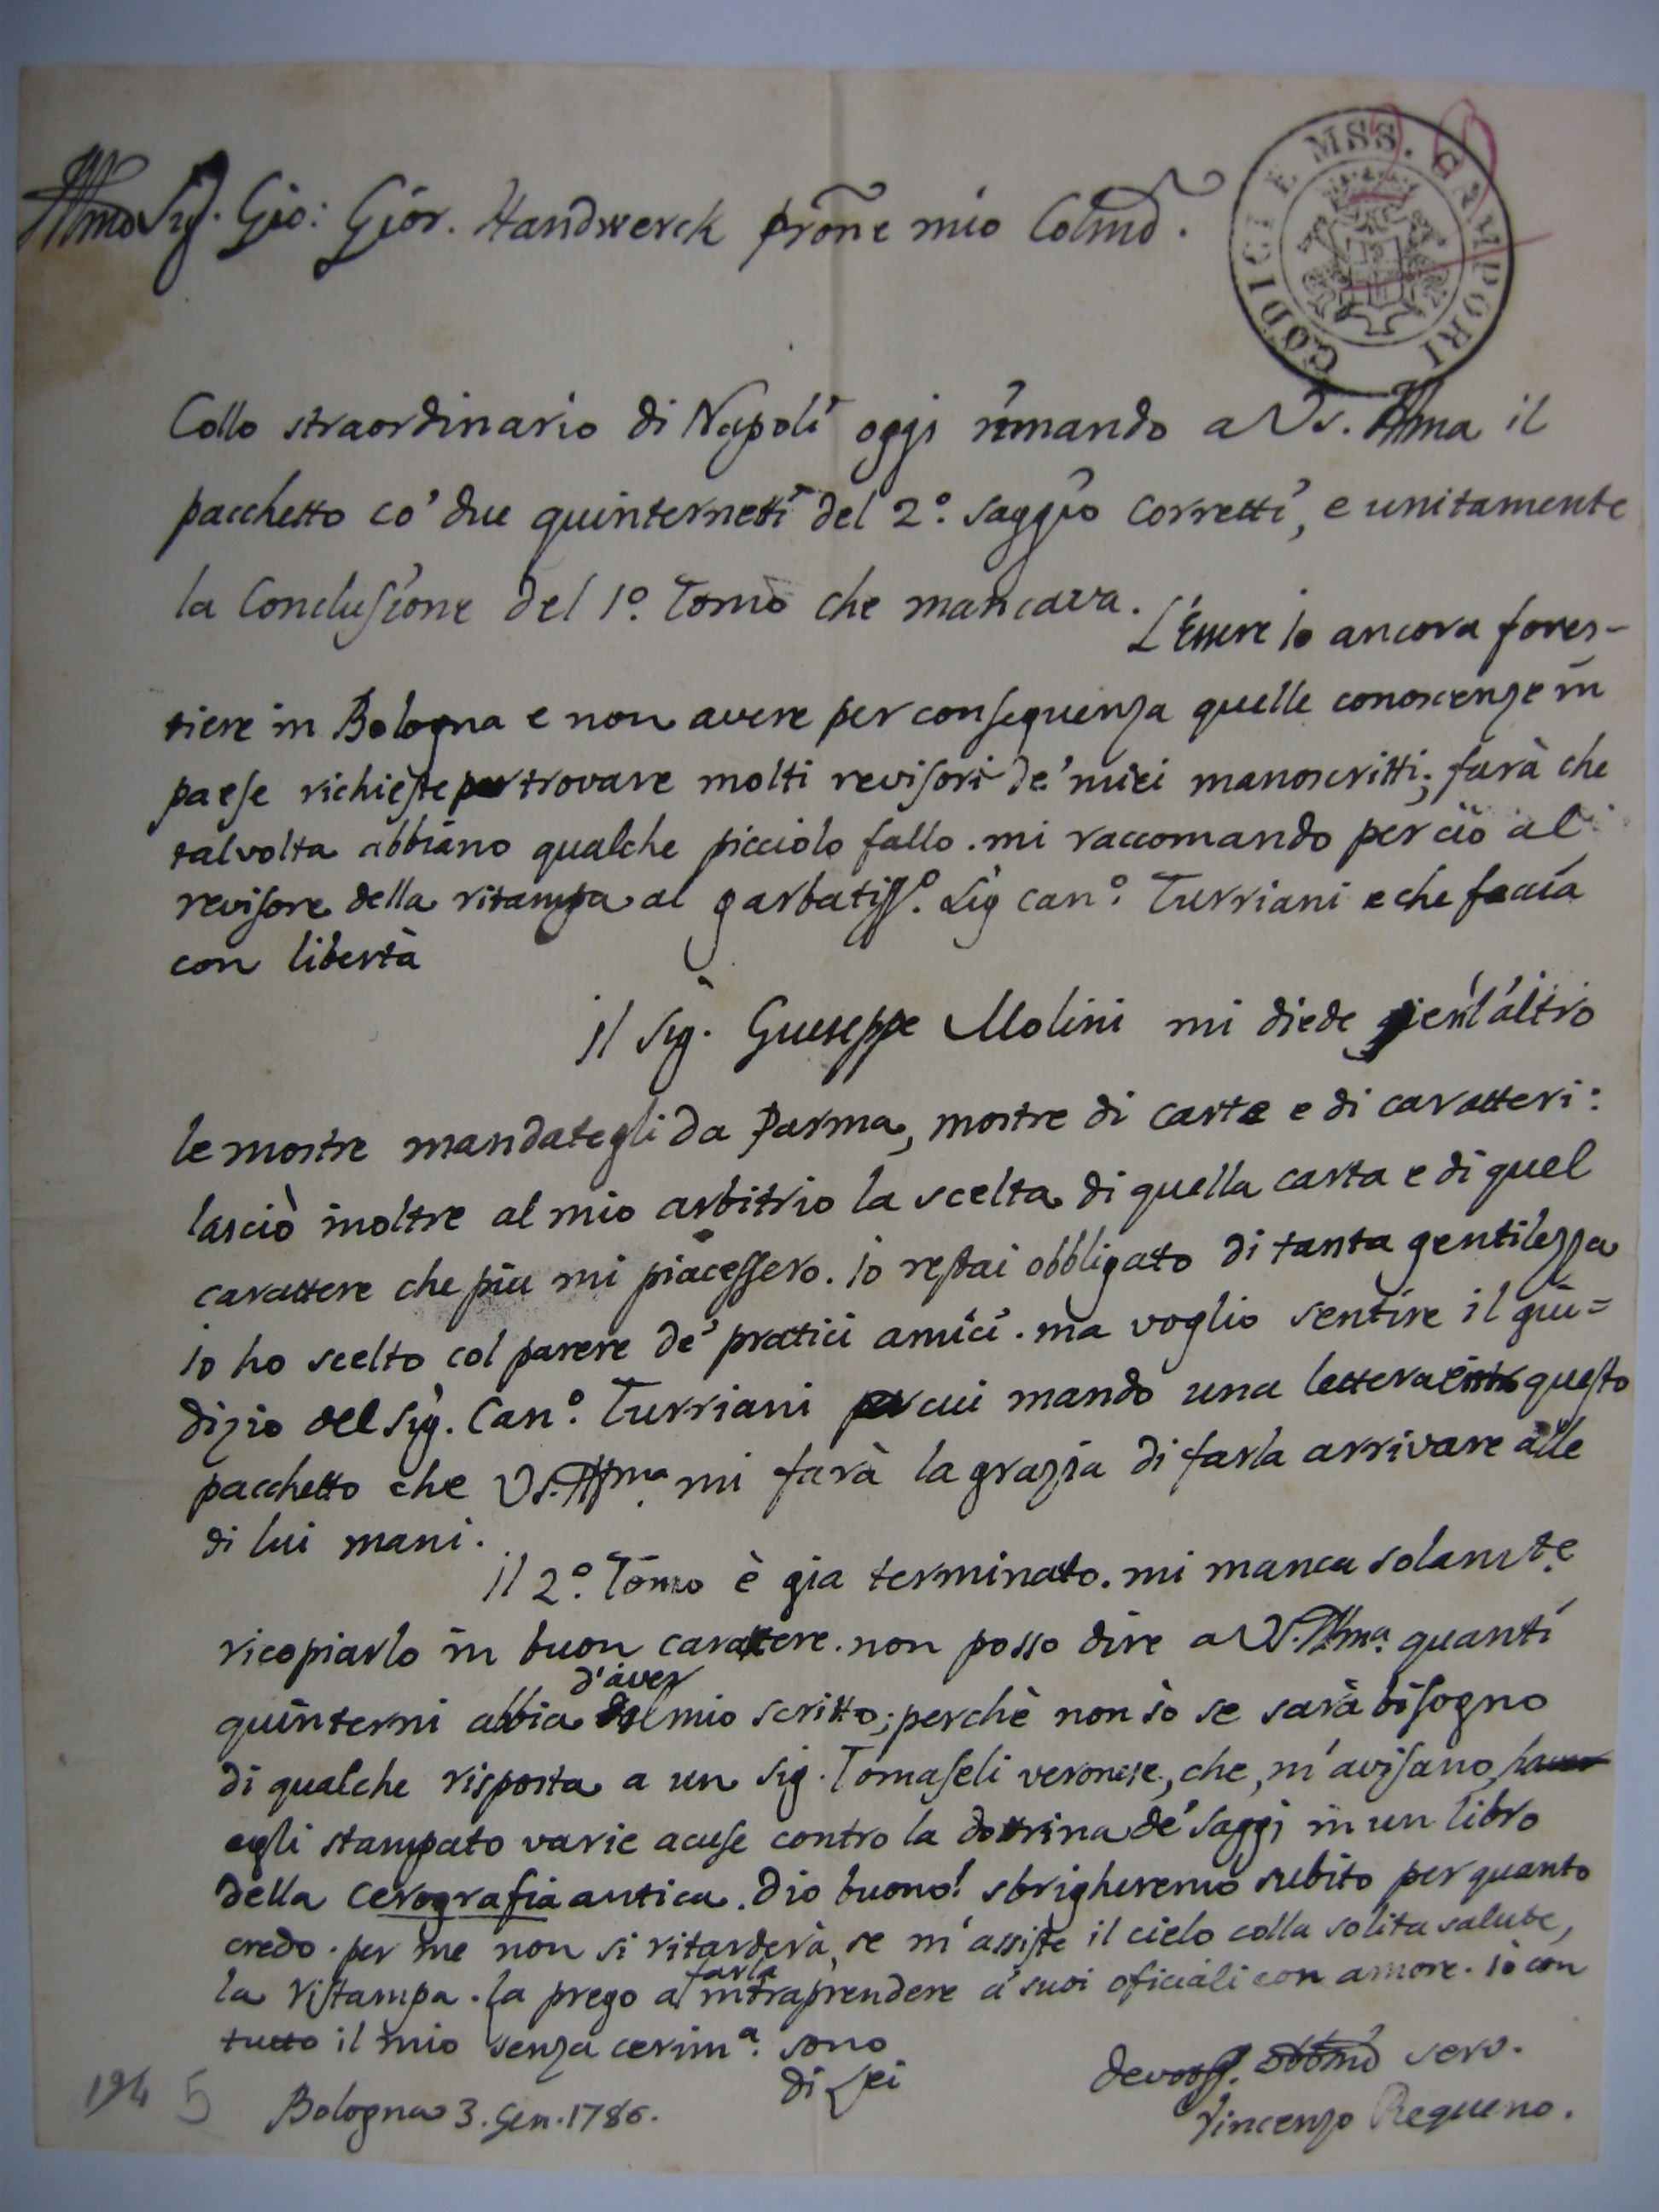 Illmo Sig. Gio: Gior. Handwerck prone mio Colmo.
CODICI E MSS. CAMPORI
Collo straordinario di Napoli oggi rimando a Vs. Illma il
pacchetto co' due quinternetti del 2.° saggio corretti, e unitamente
la Conclusione del 1.° Tomo che mancava. L'Essere io ancora fores-
tiere in Bologna e non avere per conseguenza quelle conoscenze in
paese richieste per trovare molti revisori de' miei manoscritti; farà che
talvolta abbiano qualche picciolo fallo. mi raccomando perciò al
revisore della ristampa al garbatiss.° Sig Can.° Turriani e che faccia
con libertà
il Sig. Giuseppe Molini mi diede jerl'altro
le mostre mandategli da Parma, mostre di carte e di caratteri:
lasciò inoltre al mio arbitrio la scelta di quella carta e di quel
carattere che più mi piacessero. io restai obbligato di tanta gentilezza
io ho scelto col parere de' pratici amici. ma voglio sentire il giu=
dizio del Sig. Can.° Turriani per cui mando una lettera entro questo
pacchetto che Vs. Illma. mi farà la grazia di farla arrivare alle
di lui mani.
il 2.° Tomo è già terminato. mi manca solamte.
ricopiarlo in buon carattere. non posso dire a V. Illma. quanti
quinterni abbia d'aver mio scritto; perchè non sò se sarà bisogno
di qualche risposta a un Sig. Tomaseli veronese, che, m'avisano, haver
egli stampato varie acuse contro la dottrina de' Saggj in un libro
della cerografia antica. Dio buono! sbrigheremo subito per quanto
credo. per me non si ritarderà, se m'assiste il cielo colla solita salute,
la ristampa. la prego a farla intraprendere a' suoi oficiali con amore. io con
tutto il mio senza cerima. sono
di Lei
devotss. obbmo serv.
Vincenzo Requeno.
Bologna 3. Gen. 1786.
194 5